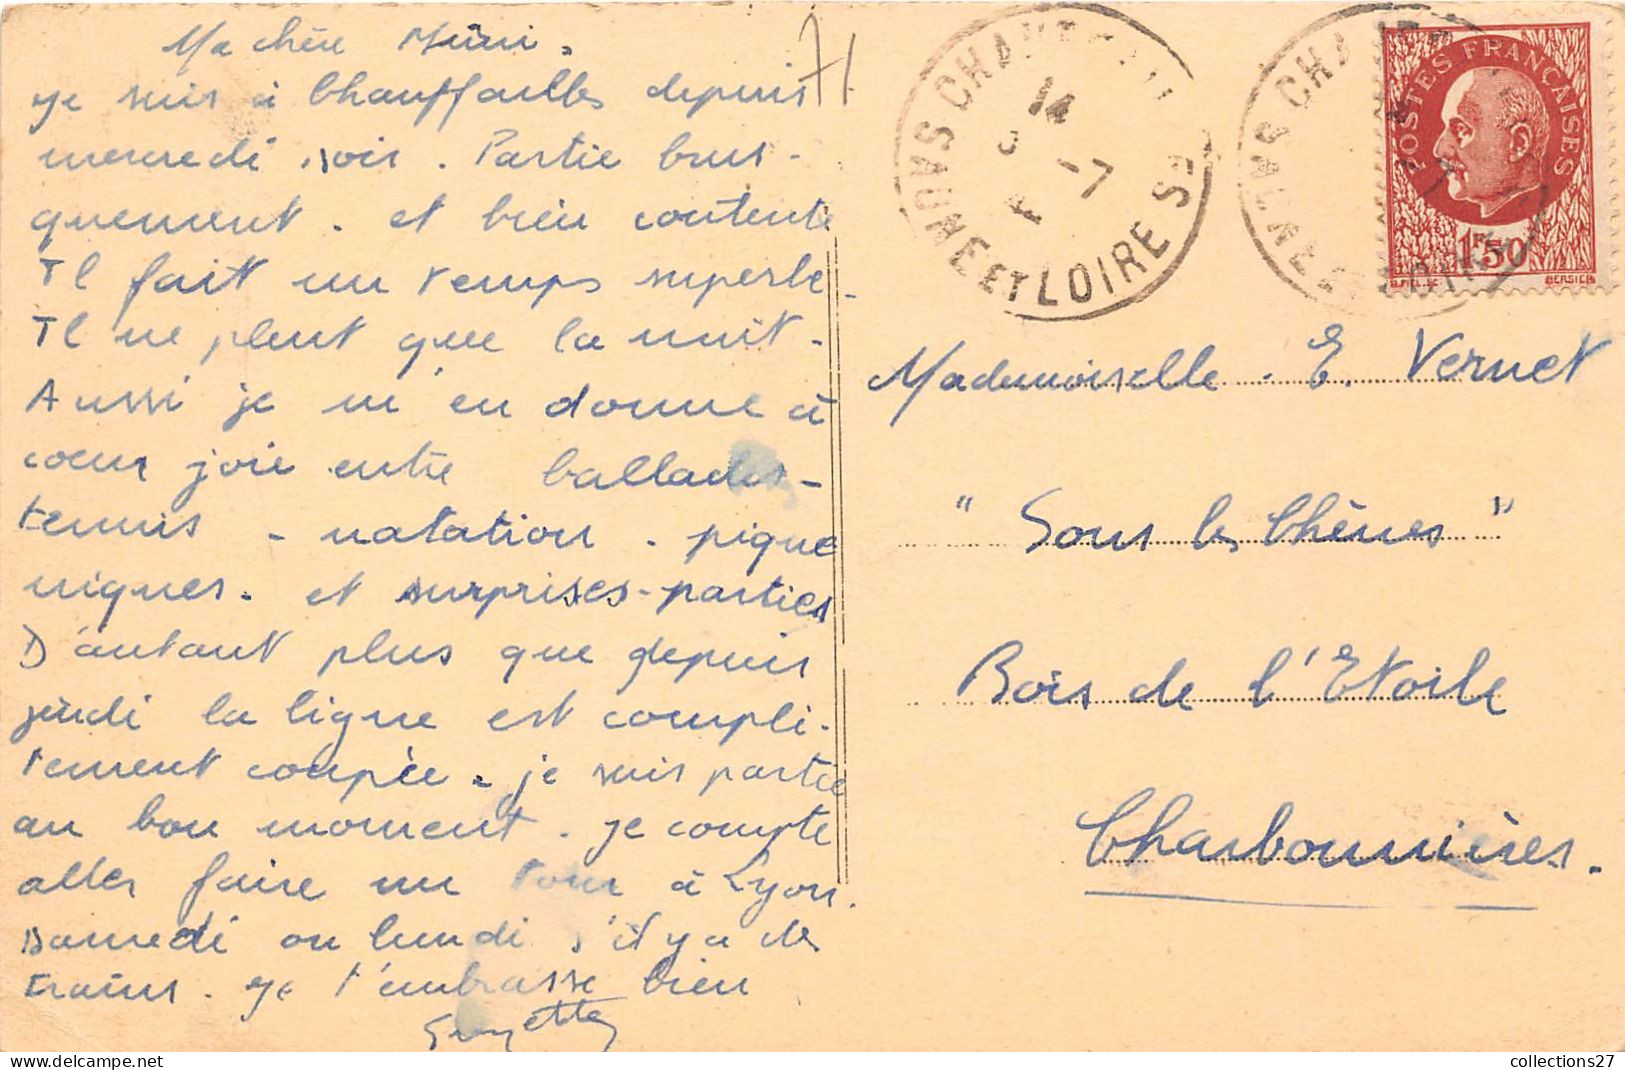 Ma chère Mimi.
je suis à Chauffailles depuis
mercredi soir. Partie brus-
quement. et bien contente
Il fait un temps superbe.
Il ne pleut que la nuit.
Aussi je m'en donne à
cœur joie entre ballades-
tennis - natation. pique
niques. et surprises-parties
D'autant plus que depuis
jeudi la ligne est complé-
tement coupée. je suis partie
au bon moment. je compte
aller faire un tour à Lyon.
samedi ou lundi s'il y a des
trains. je t'embrasse bien
Guyette
71
14
-7
SAONE ET LOIRE
POSTES FRANÇAISES
1F50
BERSIER
Mademoiselle. E. Vernet
"Sous les Chênes"
Bois de l'Etoile
Charbonnières.
collections27